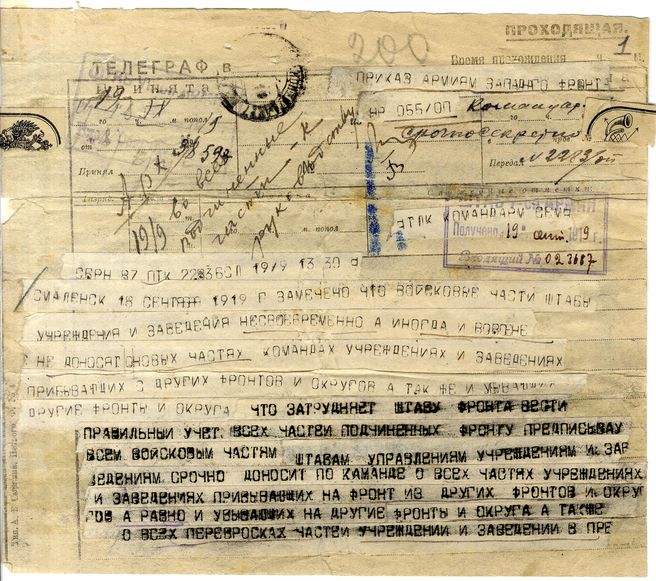 ПРОХОДЯЩАЯ.
200
1
ТЕЛЕГРАФ в
Время прохождения
ПРИКАЗ АРМИЯМ ЗАПАДНГО ФРОНТ
НР 055/ОП
Командар
Срочно секретно
Передал № 2283/оп
Принял
во все
подчиненные
части - к
руководству
19/9
Служебные отметки:
ЯТПК КОМАНДАРМ СЕМЬ
Получено 19 сент 1919 г.
Входящий № 023687
СЕРН 87 ПТК 2283БСЛ 19/9 13 30
СМАЛЕНСК 18 СЕНТЯБ 1919 Г ЗАМЕЧЕНО ЧТО ВОЙСКОВЫЕ ЧАСТИ ШТАБЫ
УЧРЕЖДЕНИЯ И ЗАВЕДЕНИЯ НЕСВОЕВРЕМЕННО А ИНОГДА И ВОВСЕНЕ
НЕ ДОНОСЯТ ОНОВЫХ ЧАСТЯХ КОМАНДАХ УЧРЕЖДЕНИЯХ И ЗАВЕДЕНИЯХ
ПРИБЫВАЮЩИХ С ДРУГИХ ФРОНТОВ И ОКРУГОВ А ТАК ЖЕ И УБЫВАЮЩИХ
ДРУГИЕ ФРОНТЫ И ОКРУГА ЧТО ЗАТРУДНЯЕТ ШТАБУ ФРОНТА ВЕСТИ
ПРАВИЛЬНЫЙ УЧЕТ ВСЕХ ЧАСТЕЙ ПОДЧИНЕННЫХ ФРОНТУ ПРЕДПИСЫВАУ
ВСЕМ ВОЙСКОВЫМ ЧАСТЯМ ШТАБАМ УПРАВЛЕНИЯМ УЧРЕЖДЕНИЯМ И ЗАВ
ВЕДЕНИЯМ СРОЧНО ДОНОСИТ ПО КАМАНДЕ О ВСЕХ ЧАСТЯХ УЧРЕЖДЕНИЯХ
И ЗАВЕДЕНИЯХ ПРИБЫВАЮЩИХ НА ФРОНТ ИЗ ДРУГИХ ФРОНТОВ И ОКРУГ
ГОВ А РАВНО И УБЫВАЮЩИХ НА ДРУГИЕ ФРОНТЫ И ОКРУГА А ТАКЖЕ
О ВСЕХ ПЕРЕБРОСКАХ ЧАСТЕЙ УЧРЕЖДЕНИИ И ЗАВЕДЕНИИ В ПРЕ